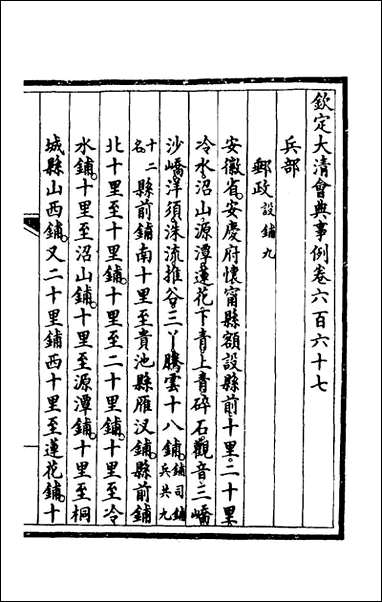 欽定大清會典事例卷六百六十七
兵部
郵政設鋪九
安徽省安慶府懷甯縣額設縣前十里二十里
冷水沼山源潭蓮花下青上青碎石觀音三嶠
沙嶠洋須洙流推谷三丫騰雲十八鋪鋪司鋪兵共九
十二名縣前鋪南十里至貴池縣雁汊鋪縣前鋪
北十里至十里鋪十里至二十里鋪十里至冷
水鋪十里至沼山鋪十里至源潭鋪十里至桐
城縣山西鋪又二十里鋪西十里至蓮花鋪十